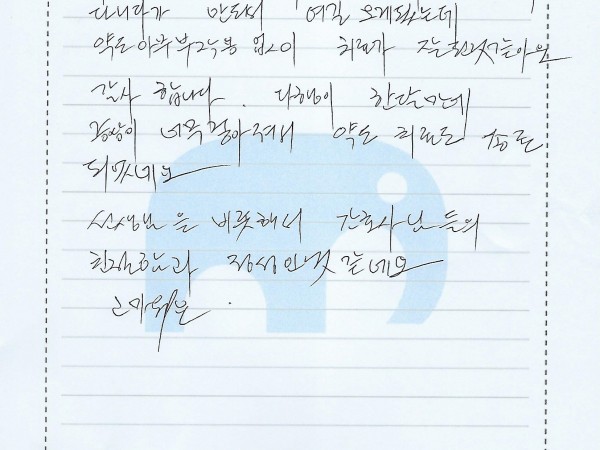 다니다가 안되서 여길 오게됐는데
약도 아주 부작용 없이 치료가 잘된것같아요
감사 합니다. 다행이 한달만에
증상이 너무 좋아져서 약도 치료도 종료
되었네요
선생님을 비롯해서 간호사님들의
친절함과 정성인것 같네요
고마워요.